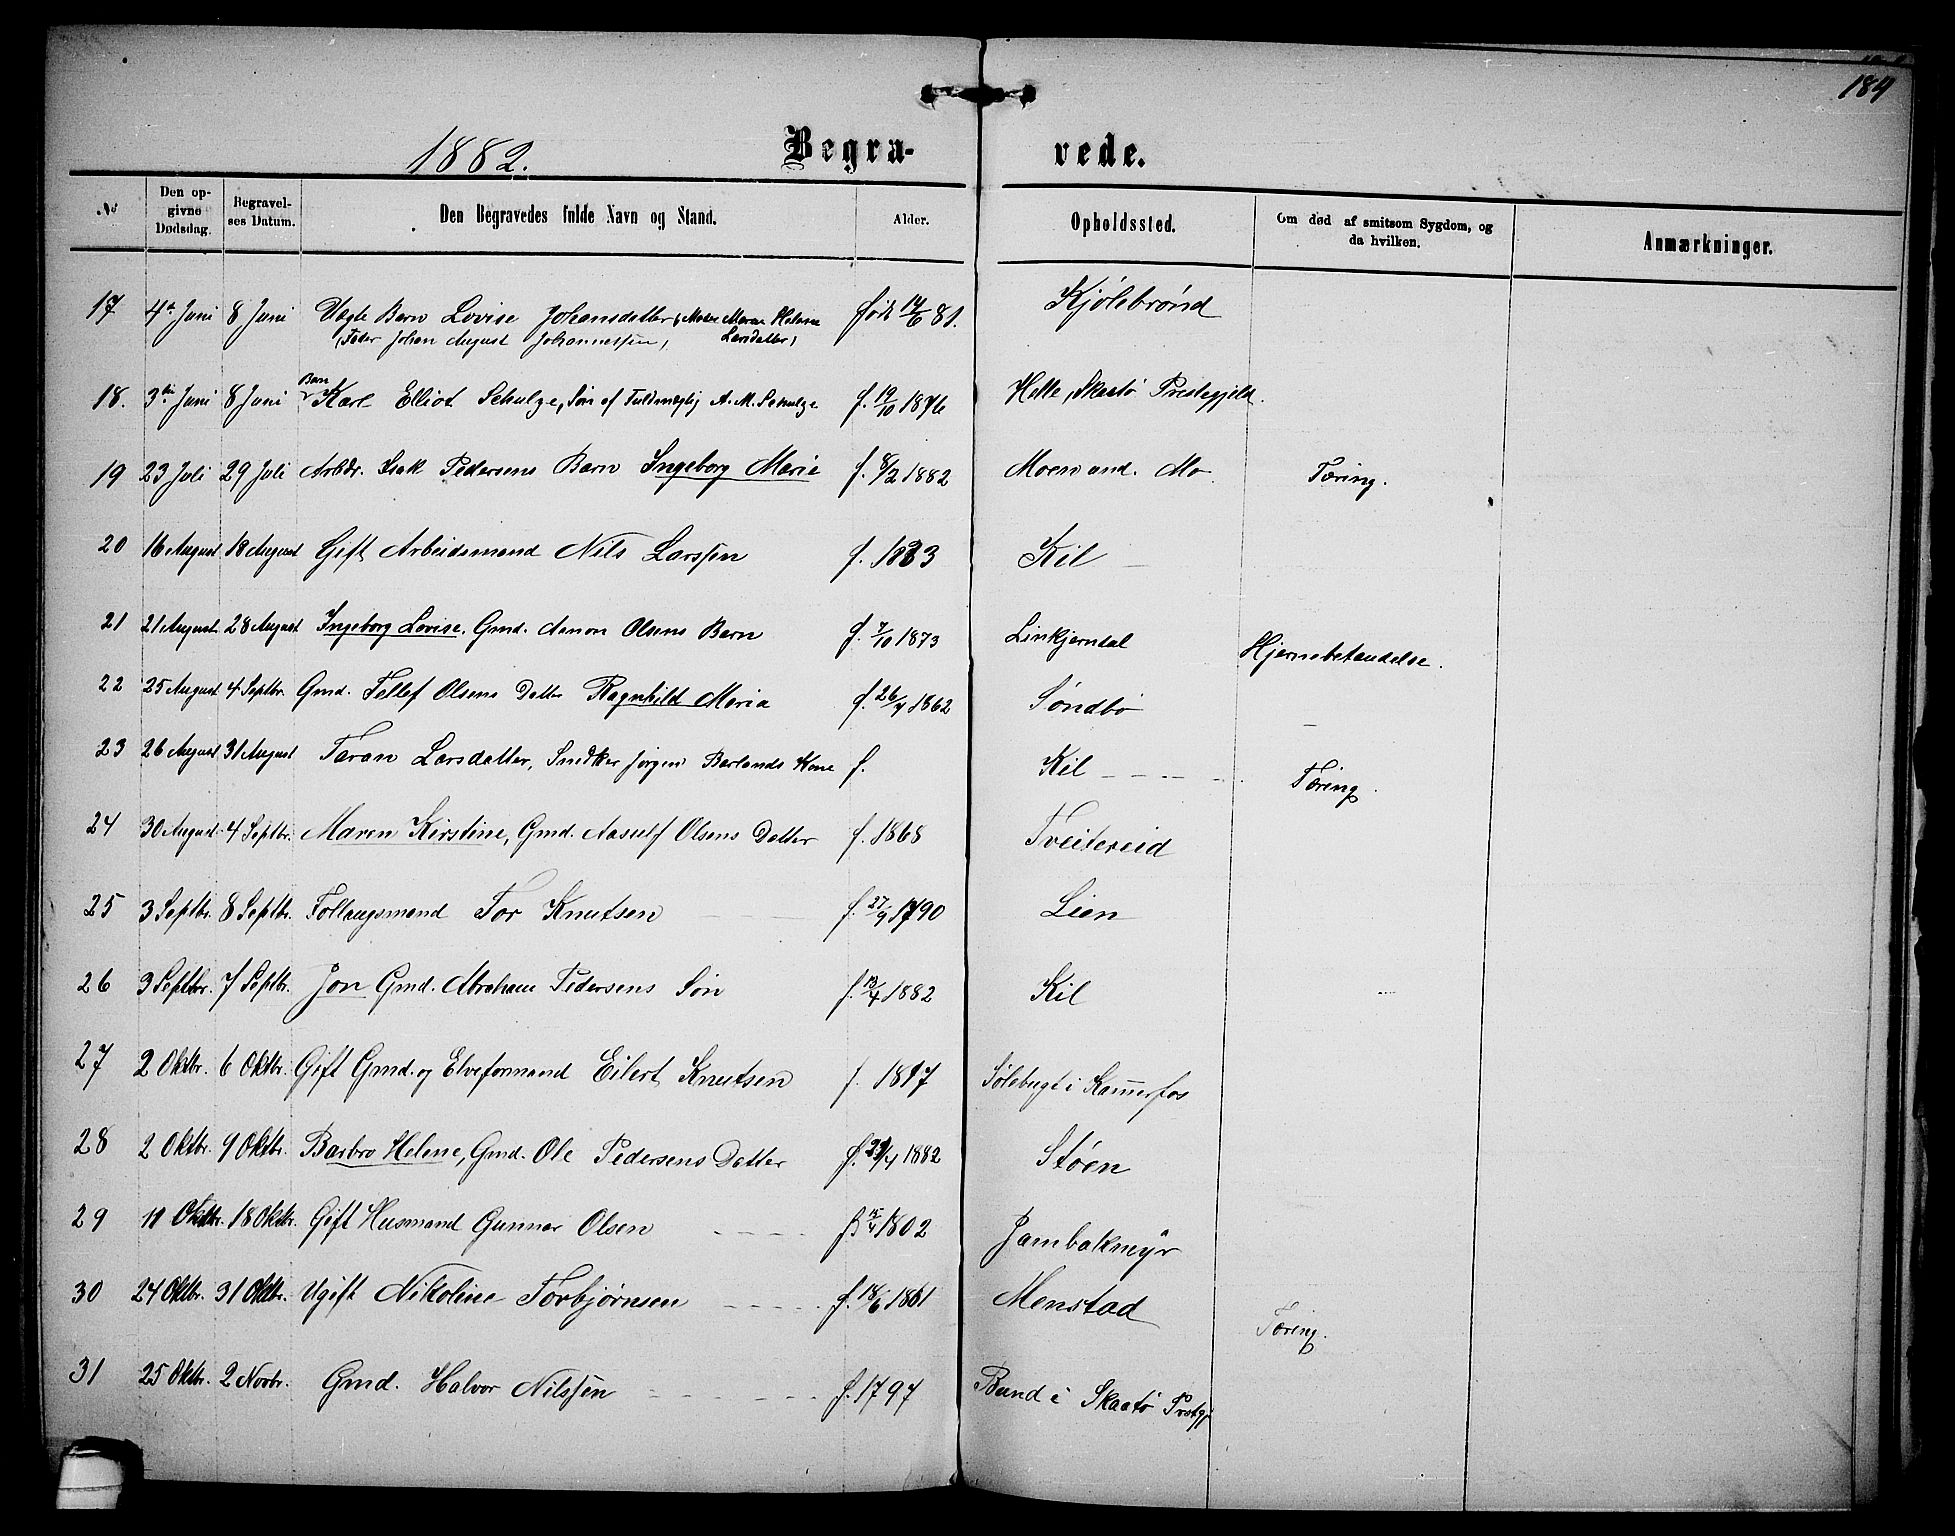 184
1882. Begra- vede.
No Den opgivne Dødsdag. Begravelses Datum. Den Begravedes fulde Navn og Stand. Alder. Opholdssted. Om død af smitsom Sygdom, og da hvilken. Anmærkninger.
17 4de Juni 8 Juni Uægte Barn Lovise Johansdatter (Moder Maren Helene Larsdatter) født 14/6 81. Kjølebrønd
(Fader Johan August Johannessen,
18. 3die Juni 8 Juni Barn Karl Elliot Schulze, Søn af Fuldmægtig A. M. Schulze f. 19/10 1876 Helle, Skaatø Prestegjeld.
19 23 Juli 29 Juli Arbdr. Isak Pedersens Barn Ingeborg Marie f. 8/2 1882 Moen und. Mo Tæring.
20 16 August 18 August Gift Arbeidsmand Nils Larssen f. 1833 Kil
21 21 August 28 August Ingeborg Lovise, Gmd. Aanon Olsens Barn f. 7/10 1873 Linkjerndal Hjernebetændelse.
22 25 August 4 Septbr. Gmd. Tellef Olsens Datter Ragnhild Maria f. 26/4 1862 Søndbø
23 26 August 31 August Taran Larsdatter, Snedker Jørgen Barlands Kone f. Kil Tæring.
24 30 August 4 Septbr. Maren Kirstine, Gmd. Aasulf Olsens Datter f. 1868 Tveitereid
25 3 Septbr. 8 Septbr. Follaugsmand Tor Knutsen f. 27/9 1790 Lien
26 3 Septbr. 7 Septbr. Jon Gmd. Abraham Pedersens Søn f. 13/4 1882 Kil
27 2 Oktbr. 6 Oktbr. Gift Gmd. og Elveformand Eilert Knutsen f. 1817 Sølebugt i Kammerfos
28 2 Oktbr. 9 Oktbr. Barbro Helene, Gmd. Ole Pedersens Datter f. /4 1882 Støen
29 11 Oktbr. 18 Oktbr. Gift Husmand Gunnar Olsen f. 1802 Jambakmyr
30 24 Oktbr. 31 Oktbr. Ugift Nikoline Torbjørnsen f. 18/6 1861 Menstad Tæring.
31 25 Oktbr. 2 Novbr. Gmd. Halvor Nilssen f. 1797 Bund i Skaatø Prstgj